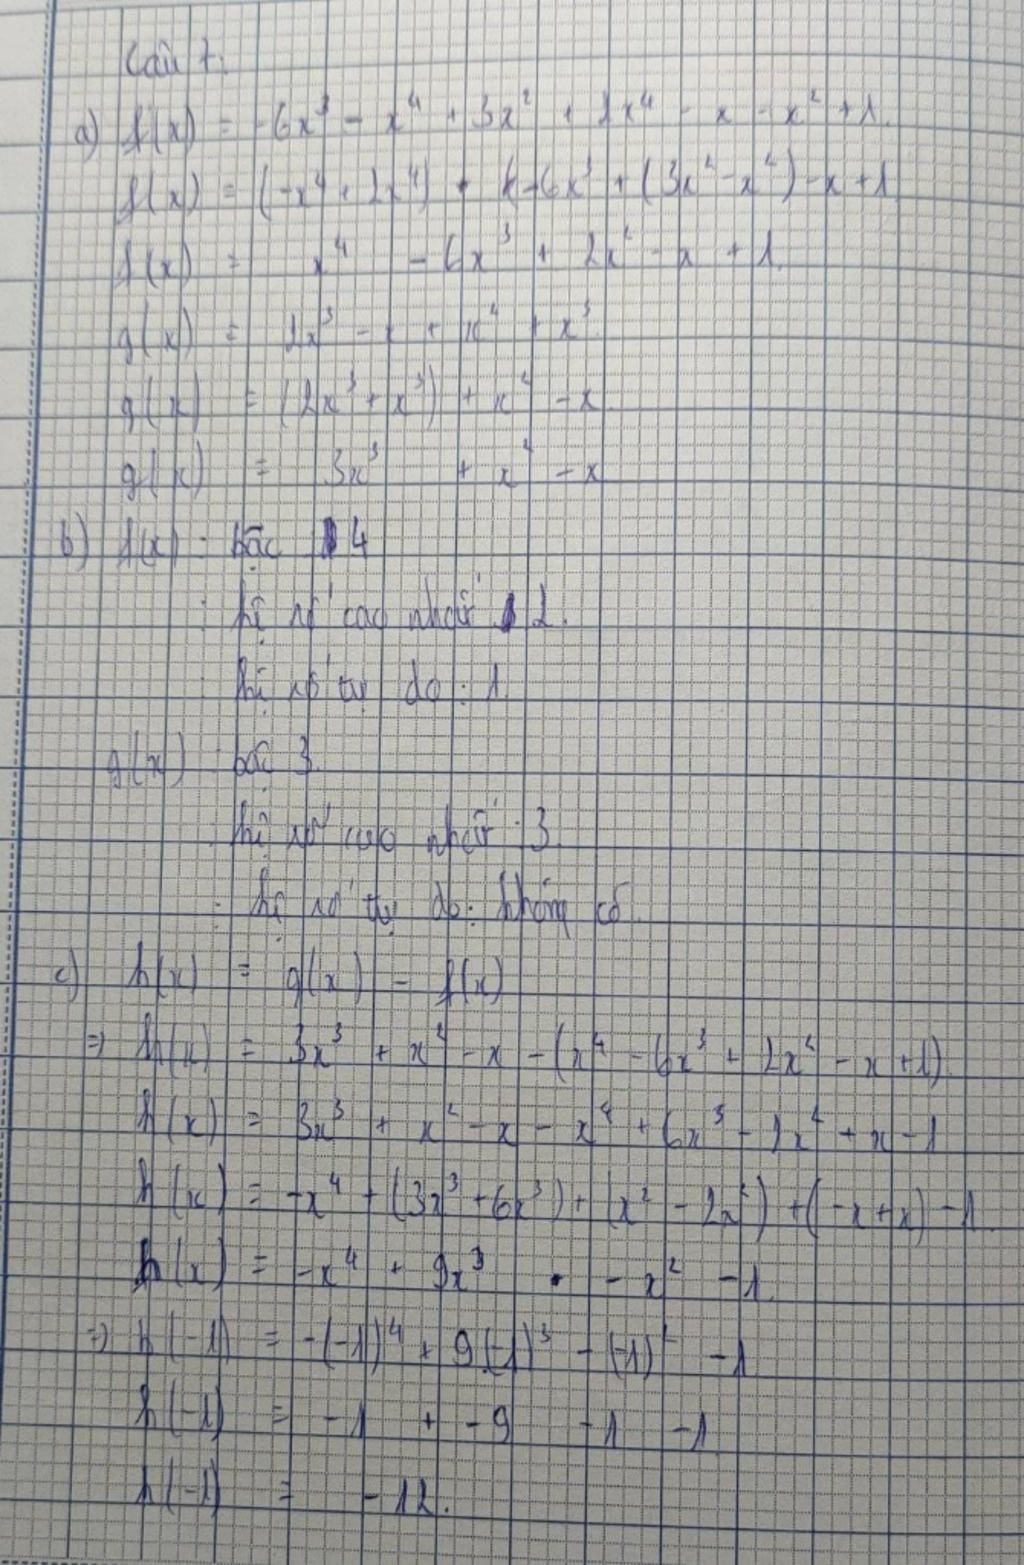 Câu 7:
a) f(x) = -6x³ - x⁴ + 3x² + 2x⁴ - x - x² + 1.
f(x) = (-x⁴ + 2x⁴) + (-6x³ + (3x² - x²) - x + 1
f(x) = x⁴ - 6x³ + 2x² - x + 1.
g(x) = 2x³ - x + x² + x³.
g(x) = (2x³ + x³) + x² - x
g(x) = 3x³ + x² - x
b) f(x) : bậc 4
: hệ số cao nhất 2.
hệ số tự do : 1.
g(x) : bậc 3.
: hệ số cao nhất : 3.
: hệ số tự do : không có.
c) h(x) = g(x) - f(x)
=> h(x) = 3x³ + x² - x - (x⁴ - 6x³ + 2x² - x + 1)
h(x) = 3x³ + x² - x - x⁴ + 6x³ - 2x² + x - 1
h(x) = -x⁴ + (3x³ + 6x³) + (x² - 2x²) + (-x + x) - 1.
h(x) = -x⁴ + 9x³ - x² - 1.
=> h(-1) = -(-1)⁴ + 9(-1)³ - (-1)² - 1
h(-1) = -1 + -9 - 1 - 1
h(-1) = -12.